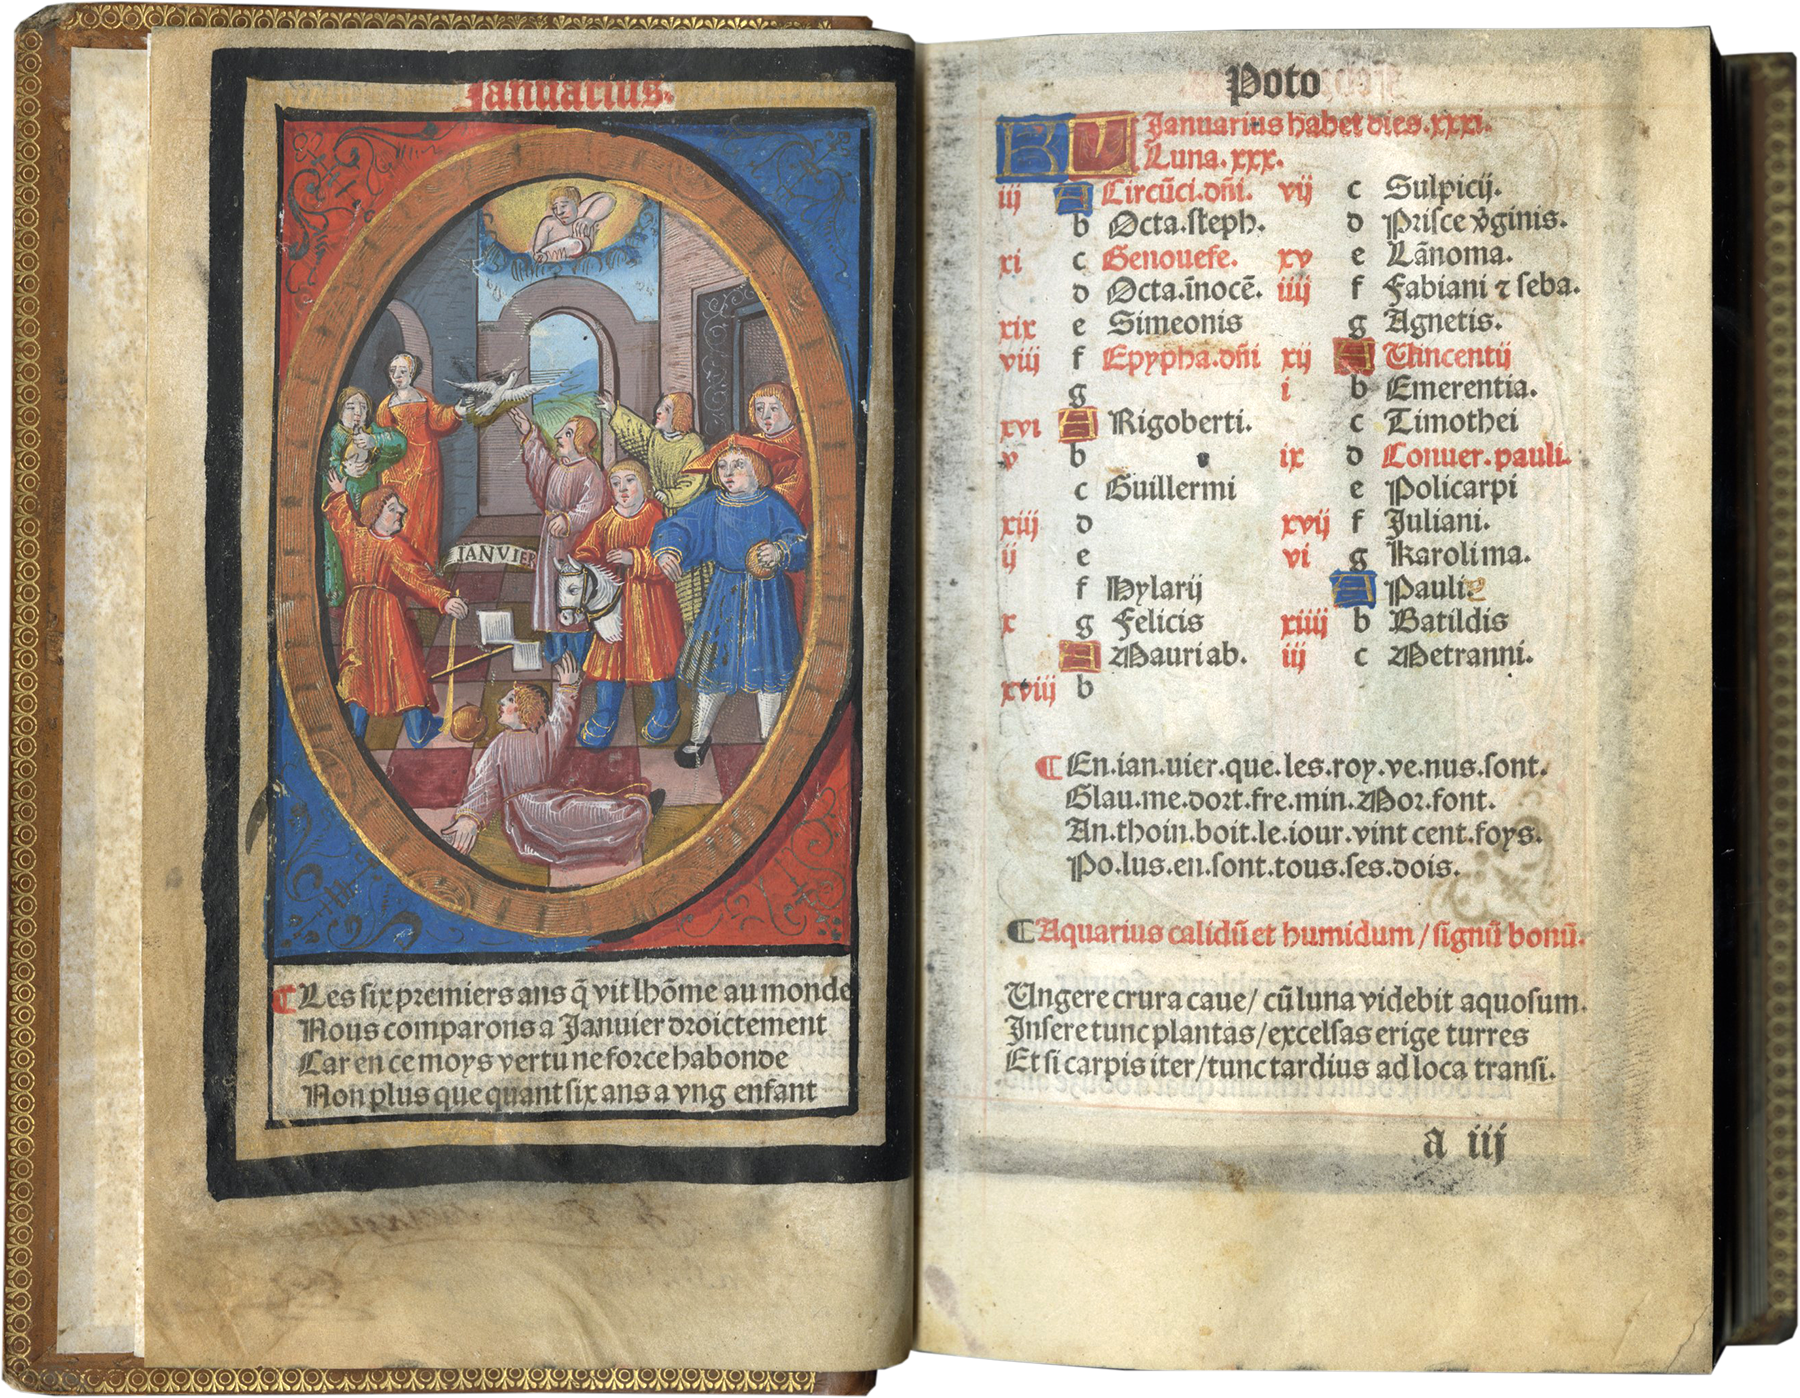 Januarius.
IANVIER
¶ Les six premiers ans q̃ vit lhõme au monde
Nous comparons a Januier droictement
Car en ce moys vertu ne force habonde
Non plus que quant six ans a vng enfant
Poto
KL Januarius habet dies.xxxi.
Luna.xxx.
iij A Circũci.dñi.
b Octa.steph.
xi c Genouefe.
d Octa.ĩnocẽ.
xix e Simeonis
viij f Epypha.dñi
g
xvi A Rigoberti.
v b
c Guillermi
xiij d
ij e
f Hylarij
x g Felicis
A Mauri ab.
xviij b
vij c Sulpicij.
d Prisce v̄ginis.
xv e Lãnoma.
iiij f Fabiani ⁊ seba.
g Agnetis.
xij A Vincentij
i b Emerentia.
c Timothei
ix d Conuer.pauli.
e Policarpi
xvij f Juliani.
vi g Karoli ma.
A Pauli
xiiij b Batildis
iij c Metranni.
¶ En.ian.uier.que.les.roy.ve.nus.sont.
Glau.me.dort.fre.min.Mor.font.
An.thoin.boit.le.iour.vint cent.foys.
Po.lus.en.sont.tous.ses.dois.
¶ Aquarius calidũ et humidum/signũ bonũ.
Ungere crura caue/ cũ luna videbit aquosum.
Insere tunc plantas/excelsas erige turres
Et si carpis iter/tunc tardius ad loca transi.
a iij